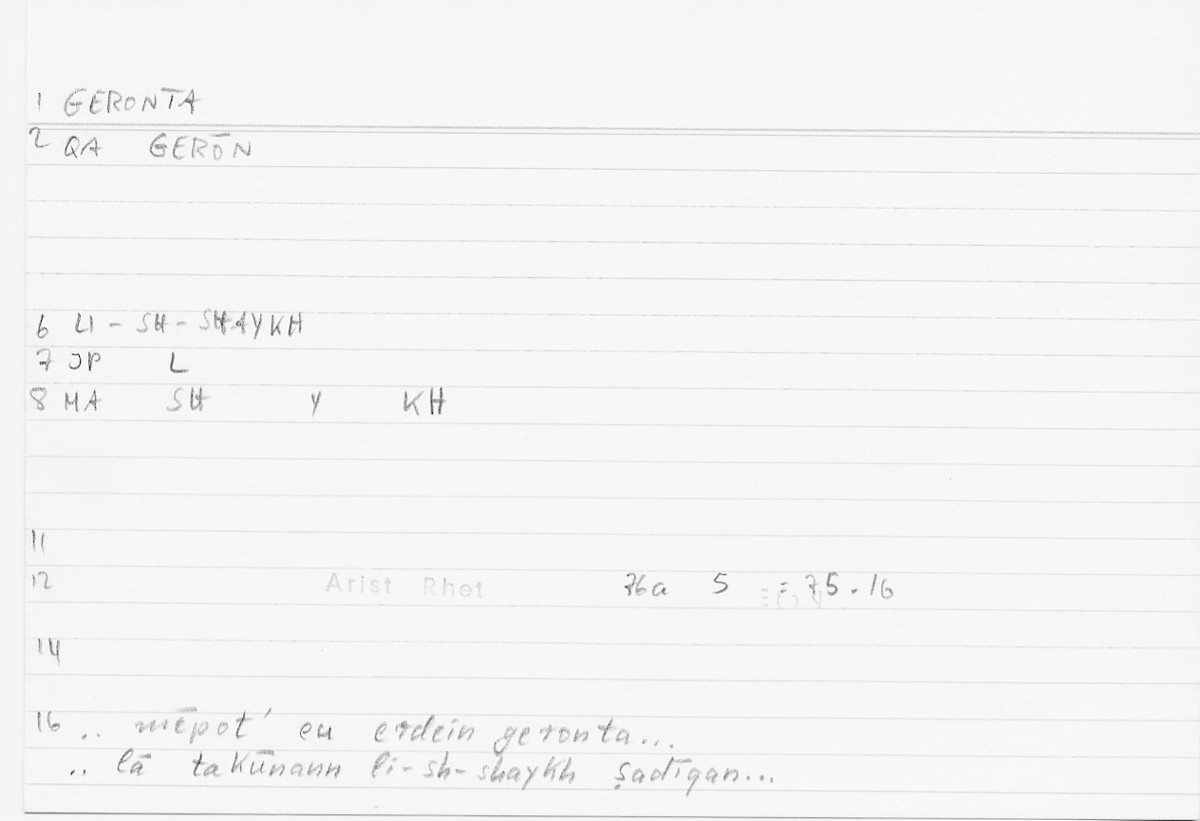 1 GERONTA
2 QA GERŌN
6 LI - SH - SHAYKH
7 JP L
8 MA SH Y KH
11
12 Arist Rhet 76a 5 = 75.16
14
16 .. mēpot' eu erdein geronta...
.. lā takūnann li-sh-shaykh ṣadīqan...